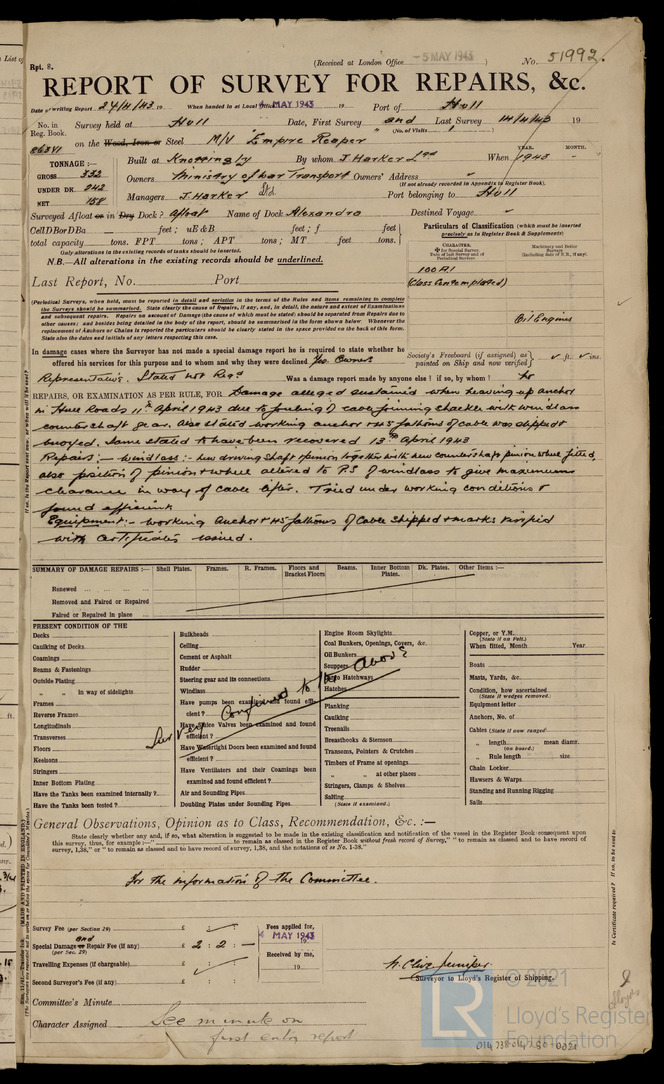 Rpt. 8.
(Received at London Office -5 MAY 1943
No. 51992.
REPORT OF SURVEY FOR REPAIRS, &c.
Date of writing Report 24/4/43 19 When handed in at Local Office 4 MAY 1943 19 Port of Hull
No. in Reg. Book. Survey held at Hull Date, First Survey and Last Survey 14/4/43 19
(No. of Visits 1 )
86341 on the Wood, Iron or Steel M/V "Empire Reaper"
TONNAGE :—
GROSS 332
UNDER DK. 242
NET 158
Built at Knottingly By whom J. Harker Ltd When 1943 -
YEAR. MONTH.
Owners Ministry of War Transport Owners' Address "
(If not already recorded in Appendix to Register Book)
Managers J. Harker Ltd. Port belonging to Hull
Surveyed Afloat or in Dry Dock? Afloat Name of Dock Alexandra Destined Voyage "
Cell D B or D Ba feet; uE&B feet; f feet
total capacity tons. FPT tons; APT tons; MT feet tons.
Only alterations in the existing records of tanks should be inserted.
N.B.—All alterations in the existing records should be underlined.
Last Report, No. Port
Particulars of Classification (which must be inserted
precisely as in Register Book & Supplements)
CHARACTER.
✠ for Special Survey
Date of last Survey and of
Periodical Surveys
Machinery and Boiler
Surveys
(Including date of N.B., if any).
100 A1
(Class Contemplated)
Oil Engines
(Periodical Surveys, when held, must be reported in detail and seriatim in the terms of the Rules and items remaining to complete
the Surveys should be summarised. State clearly the cause of Repairs, if any, and, in detail, the nature and extent of Examinations
and subsequent repairs. Repairs on account of Damage (the cause of which must be stated) should be separated from Repairs due to
other causes; and besides being detailed in the body of the report, should be summarised in the form shown below. Whenever the
replacement of Anchors or Chains is reported the particulars should be clearly stated in the space provided on the back of this form.
State also the dates and initials of any letters respecting this case.
In damage cases where the Surveyor has not made a special damage report he is required to state whether he
offered his services for this purpose and to whom and why they were declined Yes. Owners
Society's Freeboard (if assigned) as
painted on Ship and now verified ✓ ft. ✓ ins.
Representative. Stated not Reqd Was a damage report made by anyone else? if so, by whom? No
REPAIRS, OR EXAMINATION AS PER RULE, FOR Damage alleged sustained when heaving up anchor
in Hull Roads 11th April 1943 due to fouling of cable joining shackle with windlass
countershaft gear. Also stated working anchor & 45 fathoms of cable was slipped &
buoyed. Same stated to have been recovered 13th April 1943
Repairs :— Windlass :- New driving shaft & pinion together with new countershaft pinion wheel fitted,
also position of pinion & wheel altered to P.S of windlass to give maximum
clearance in way of cable lifter. Tried under working conditions &
found efficient
Equipment :- Working Anchor & 45 fathoms of cable shipped & marks verified
with Certificates issued.
SUMMARY OF DAMAGE REPAIRS :— Shell Plates. Frames. R. Frames. Floors and Bracket Floors Beams. Inner Bottom Plates. Dk. Plates. Other Items :—
Renewed
Removed and Faired or Repaired
Faired or Repaired in place
PRESENT CONDITION OF THE
Decks
Caulking of Decks
Coamings
Beams & Fastenings
Outside Plating
" " in way of sidelights
Frames
Reverse Frames
Longitudinals
Transverses
Floors
Keelsons
Stringers
Inner Bottom Plating
Have the Tanks been examined internally?
Have the Tanks been tested?
Bulkheads
Ceiling
Cement or Asphalt
Rudder
Steering gear and its connections
Windlass
Have pumps been examined and found effi-
cient?
Have Sluice Valves been examined and found
efficient?
Have Watertight Doors been examined and found
efficient?
Have Ventilators and their Coamings been
examined and found efficient?
Air and Sounding Pipes
Doubling Plates under Sounding Pipes
Engine Room Skylights
Coal Bunkers, Openings, Covers, &c.
Oil Bunkers
Scuppers
Cargo Hatchways
Hatches
Planking
Caulking
Treenails
Breasthooks & Stemson
Transoms, Pointers & Crutches
Timbers of Frame at openings
" " at other places
Stringers, Clamps & Shelves
Salting
(State if examined.)
Copper, or Y.M.
(State if on Felt.)
When fitted, Month Year
Boats
Masts, Yards, &c.
Condition, how ascertained
(State if wedges removed.)
Equipment letter
Anchors, No. of
Cables (State if now ranged)
" length mean diamr.
(on board.)
" Rule length size
Chain Locker
Hawsers & Warps
Standing and Running Rigging
Sails
Survey Confined to the Above
General Observations, Opinion as to Class, Recommendation, &c. :—
State clearly whether any, and if so, what alteration is suggested to be made in the existing classification and notification of the vessel in the Register Book consequent upon
this survey, thus, for example :—" to remain as classed in the Register Book without fresh record of Survey," "to remain as classed and to have record of
survey, 1,38," or "to remain as classed and to have record of survey, 1,38, and the notations of ss No. 1-38."
For the information of the Committee.
Survey Fee (per Section 29) £ : :
Special Damage and Repair Fee (if any) £ 2 : 2 : —
(per Sec. 29)
Travelling Expenses (if chargeable) £ : :
Second Surveyor's Fee (if any) £ : :
Fees applied for,
4 MAY 1943
19
Received by me,
19
Surveyor to Lloyd's Register of Shipping.
Committee's Minute
Character Assigned See minute on
first entry report
© 2021
Lloyd's Register
Foundation
LR